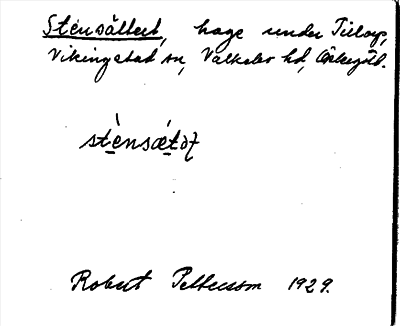 Stensättert, hage under Tillorp,
Vikingstad sn, Valkebo hd, Östergötl.
stènsǽtət
Robert Pettersson 1929.